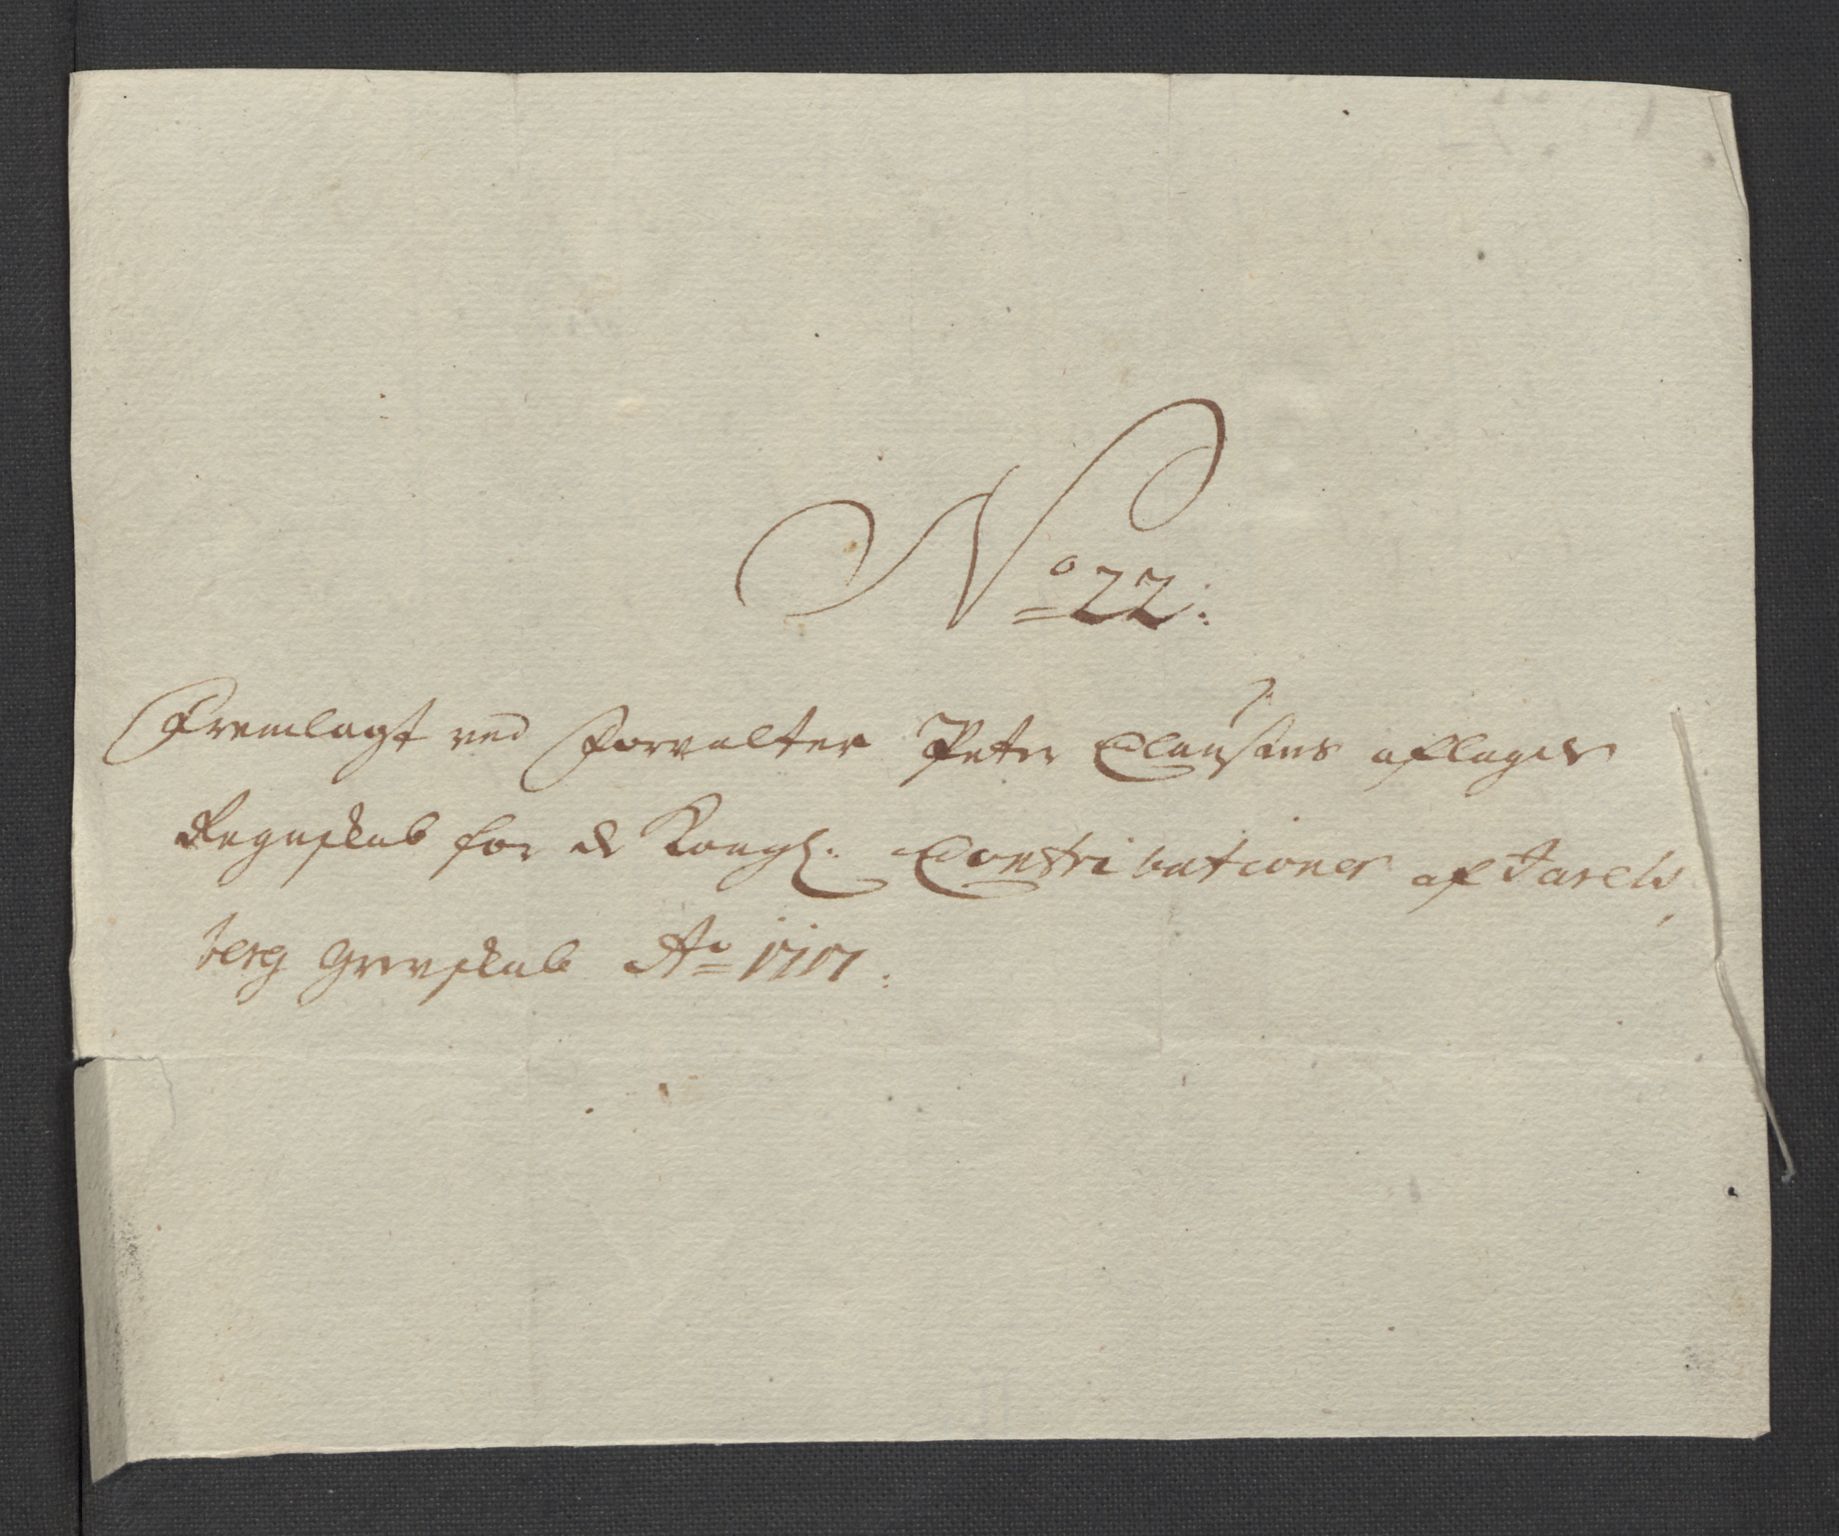 No 22:
Fremlagt ved Forvalter Peter Clausens aflagde
Regnskab for de Kongl: Contributioner af Jarels,
berg Grevskab Ao 1717.